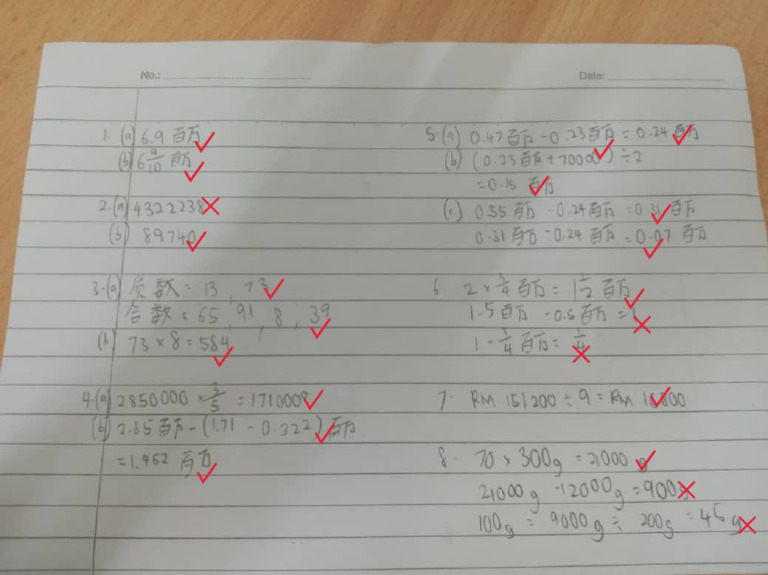 No.:
Date:
1. (a) 6.9 百万
(b) 6 9/10 百万
2. (a) 4322238
(b) 89740
3. (a) 质数 = 13, 73
合数 = 65, 91, 8, 39
(b) 73 × 8 = 584
4. (a) 2850000 × 3/5 = 1710000
(b) 2.85 百万 - (1.71 - 0.322) 百万
= 1.462 百万
5 (a) 0.47 百万 - 0.23 百万 = 0.24 百万
(b) (0.23 百万 + 70000) ÷ 2
= 0.15 百万
(c) 0.55 百万 - 0.24 百万 = 0.31 百万
0.31 百万 - 0.24 百万 = 0.07 百万
6. 2 × 3/4 百万 = 1 1/2 百万
1.5 百万 - 0.5 百万 =
1 - 1/4 百万 =
7. RM 151200 ÷ 9 = RM 16800
8. 70 × 300g = 21000 g
21000g - 12000g = 900g
100g = 9000g ÷ 200g = 45 g